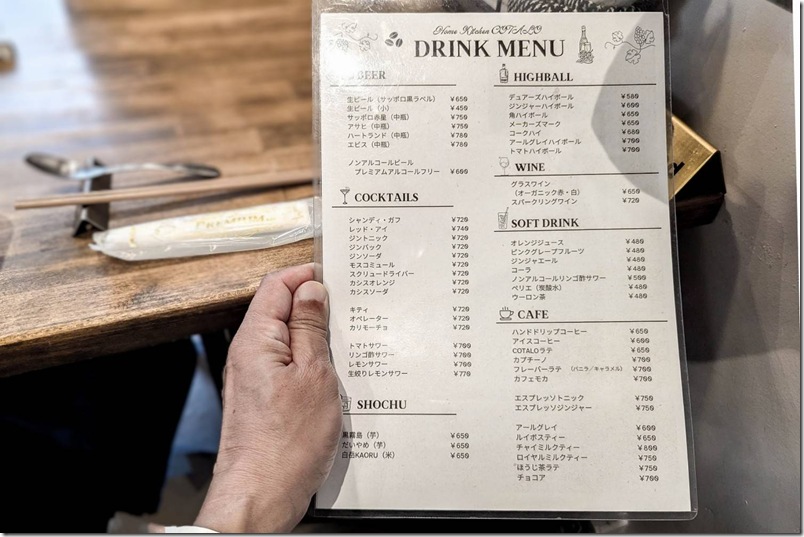 Home Kitchen COTALO
DRINK MENU
BEER
生ビール（サッポロ黒ラベル） ￥650
生ビール（小） ￥450
サッポロ赤星（中瓶） ￥750
アサヒ（中瓶） ￥750
ハートランド（中瓶） ￥780
エビス（中瓶） ￥780
ノンアルコールビール
プレミアムアルコールフリー ￥600
COCKTAILS
シャンディ・ガフ ￥720
レッド・アイ ￥740
ジントニック ￥720
ジンバック ￥720
ジンソーダ ￥720
モスコミュール ￥720
スクリュードライバー ￥720
カシスオレンジ ￥720
カシスソーダ ￥720
キティ ￥720
オペレーター ￥720
カリモーチョ ￥720
トマトサワー ￥700
リンゴ酢サワー ￥700
レモンサワー ￥700
生絞りレモンサワー ￥770
SHOCHU
黒霧島（芋） ￥650
だいやめ（芋） ￥650
白岳KAORU（米） ￥650
HIGHBALL
デュアーズハイボール ￥580
ジンジャーハイボール ￥600
角ハイボール ￥650
メーカーズマーク ￥650
コークハイ ￥680
アールグレイハイボール ￥700
トマトハイボール ￥700
WINE
グラスワイン
（オーガニック赤・白） ￥650
スパークリングワイン ￥720
SOFT DRINK
オレンジジュース ￥480
ピンクグレープフルーツ ￥480
ジンジャエール ￥480
コーラ ￥480
ノンアルコールリンゴ酢サワー ￥500
ペリエ（炭酸水） ￥480
ウーロン茶 ￥480
CAFE
ハンドドリップコーヒー ￥650
アイスコーヒー ￥600
COTALOラテ ￥650
カプチーノ ￥700
フレーバーラテ （バニラ／キャラメル） ￥700
カフェモカ ￥700
エスプレッソトニック ￥750
エスプレッソジンジャー ￥750
アールグレイ ￥600
ルイボスティー ￥650
チャイミルクティー ￥800
ロイヤルミルクティー ￥750
ほうじ茶ラテ ￥750
チョコア ￥700